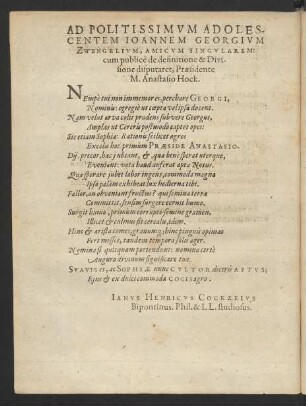 AD POLITISSIMVM ADOLES-
CENTEM IOANNEM GEORGIVM
ZWENGELIVM, AMICVM SINGVLAREM:
cum publicè de definitione & Divi-
sione disputaret, Præside
M. Anastasio Hock.
NEmpè tui non immemor es, perchare GEORGI,
Nominis egregiè ut cæpta velipsa docent.
Nam velut arva colit prudens subvere Georgus,
Amplas ut Cereris postmodò captet opes:
Sic etiam Sophiæ Rationis scilicet agros
Excolis hoc primùm PRÆSIDE ANASTASIO.
Dj, precor, hac jubeant, & quæ benè sperat uterque,
Eveniant: vota haud auferat apta Notus.
Quæ sperare jubet labor ingens, commoda magna
Ipsa palàm exhibeat lux hodierna tibi.
Fallor, an obveniant fructus? quæ semina terra
Committis, sensim surgere cernit humo.
Surgit humo, primùm corrupto semine gramen,
Illicet & culmus fit cerealu idem.
Hinc & arista comes, granumq́; hinc pinguis opimas
Fert messes, tandem tempore flavet ager.
Nominis si quisquam portendunt: nomina certè
Auguror eventum significare tuæ.
SUAVIS es, & SOPHIÆ nunc CULTOR dicendus APTUS;
Ejus & ex dulci commoda COCIS agro.
IANUS HENRICVS COCKAEIVS
Bipontinus. Phil. & L L. studiosus.